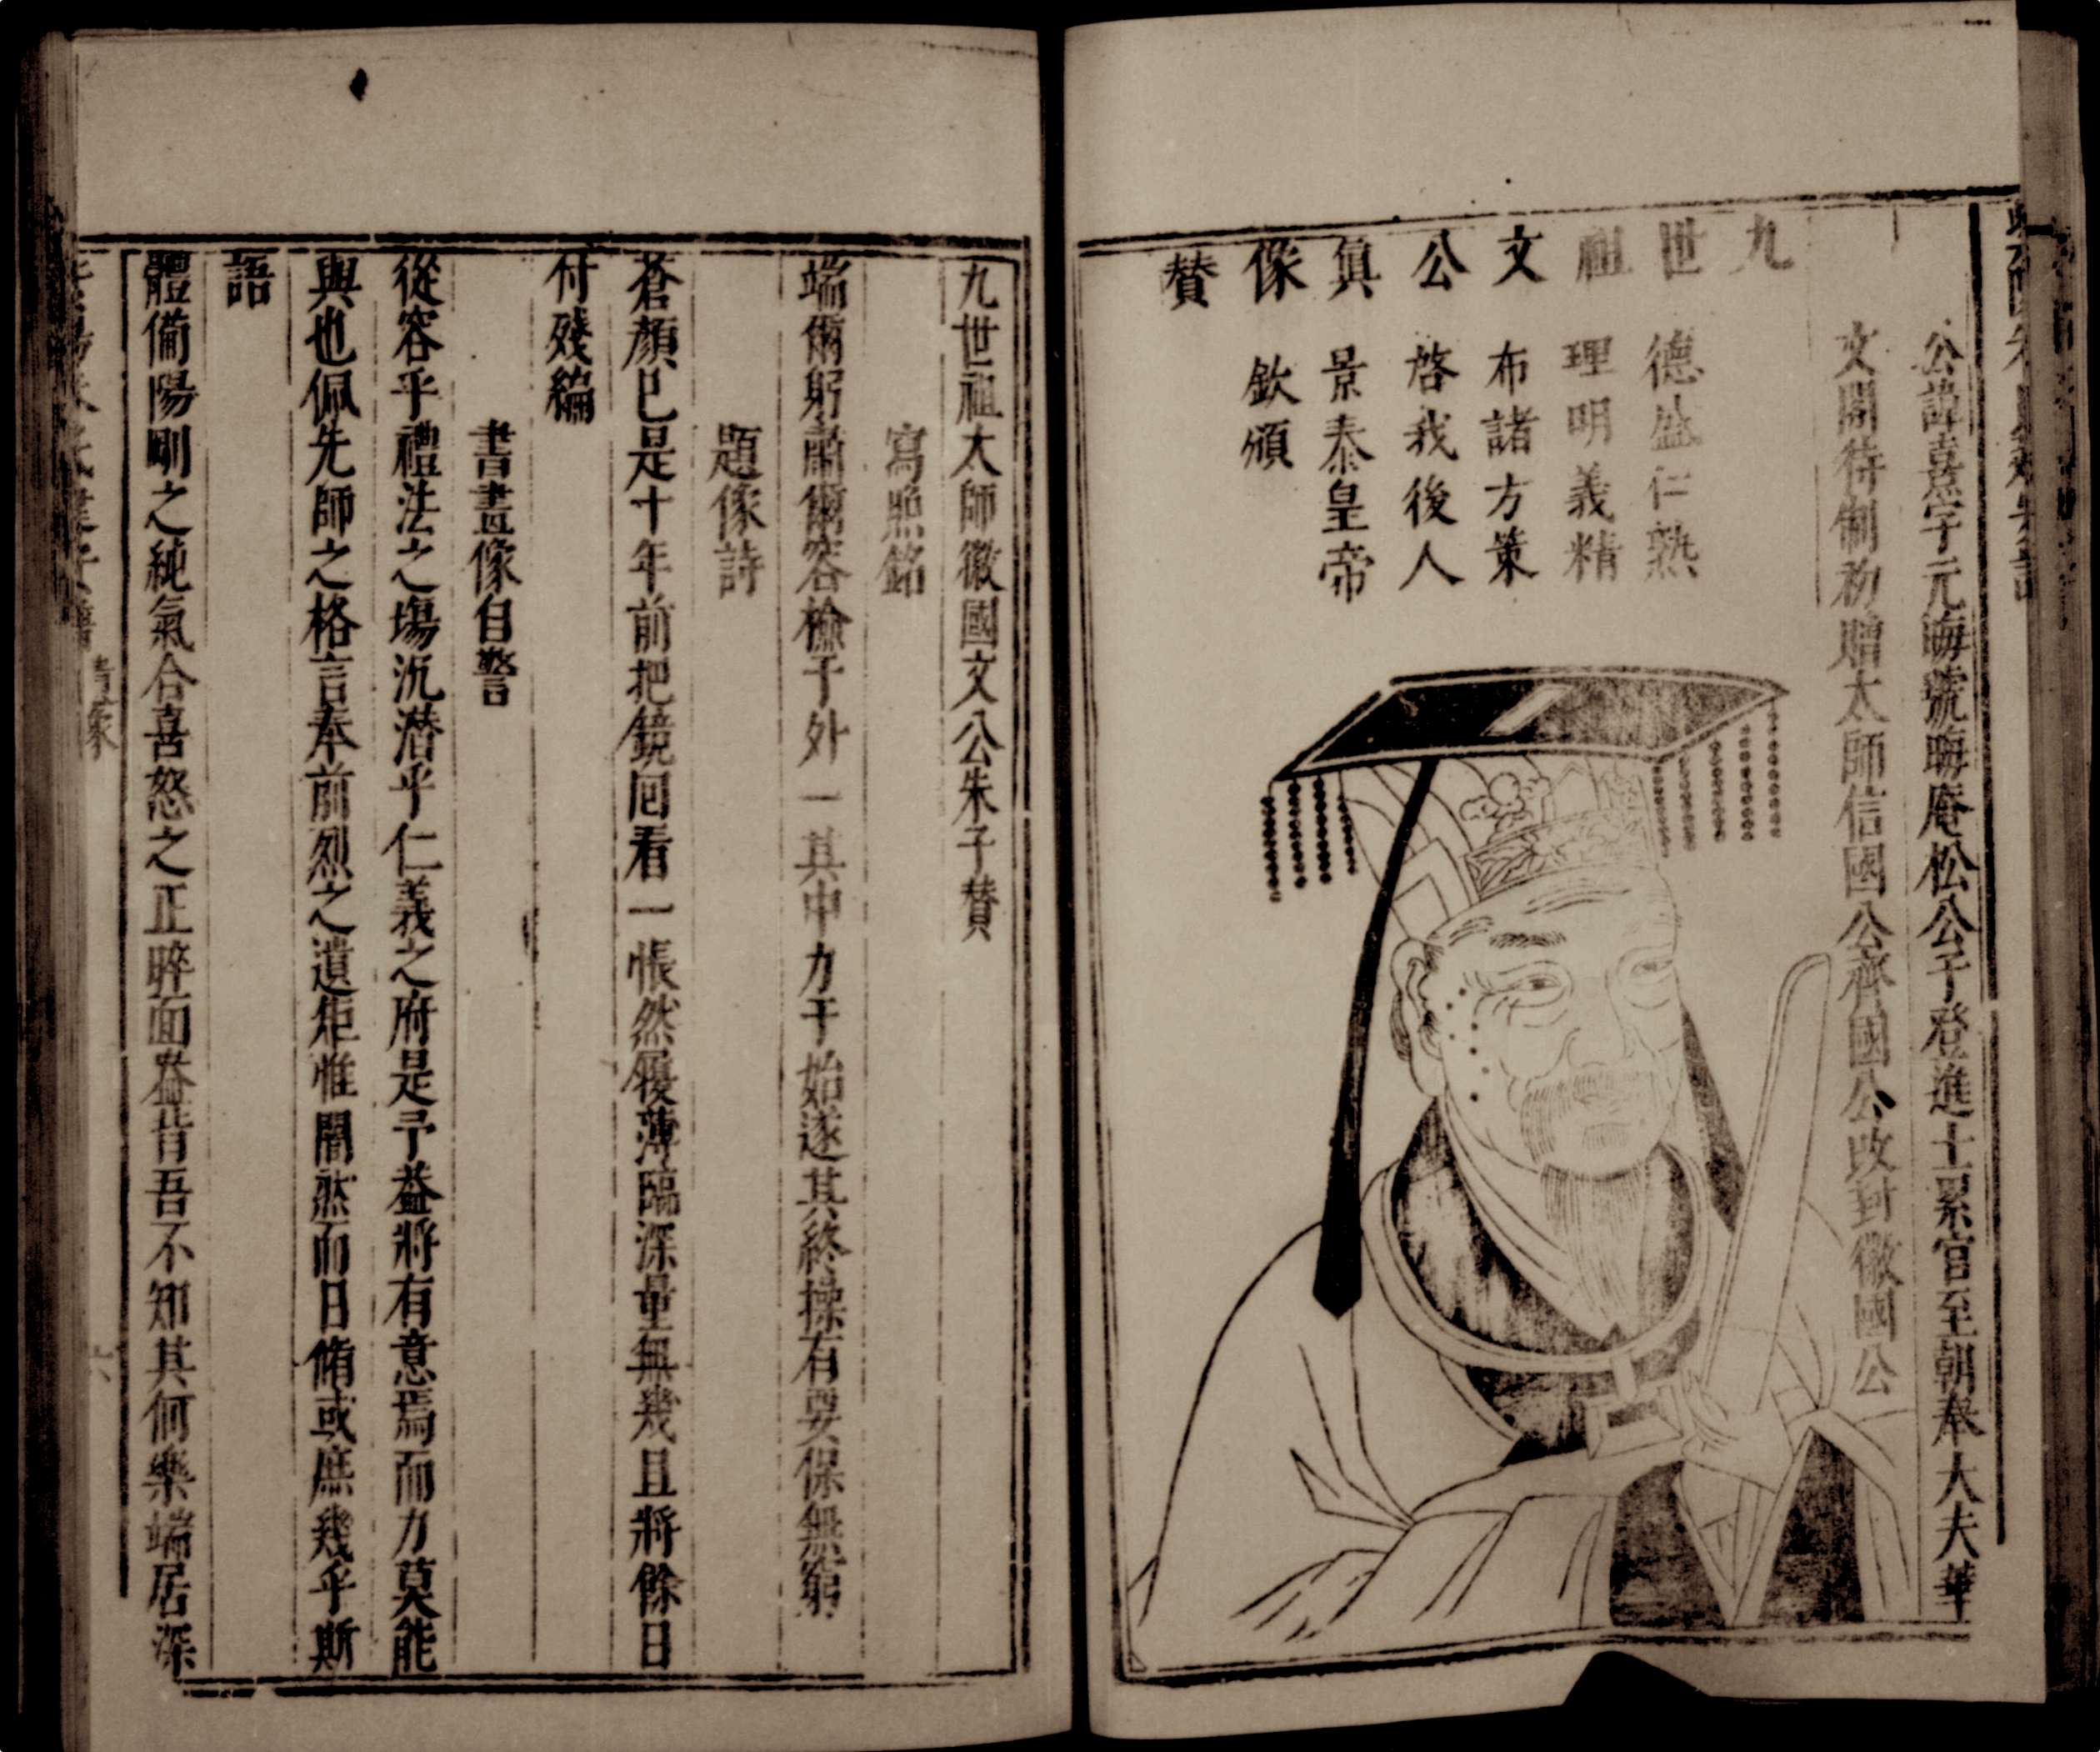 公諱熹字元晦號晦庵松公子登進士累官至朝奉大夫華
文閣待制初贈太師信國公齊國公改封徽國公
九世祖文公眞像贊
德盛仁熟
理明義精
布諸方策
啓我後人
景泰皇帝
欽頒
九世祖太師徽國文公朱子贊
寫照銘
端爾躬肅爾容檢于外一其中力于始遂其終操有要保無窮
題像詩
蒼顏已是十年前把鏡囘看一悵然履薄臨深量無幾且將餘日
付殘編
書畫像自警
從容乎禮法之場沉潛乎仁義之府是予葢將有意焉而力莫能
與也佩先師之格言奉前烈之遺矩惟闇然而日脩或庶幾乎斯
語
體備陽剛之純氣合喜怒之正睟面盎背吾不知其何樂端居深